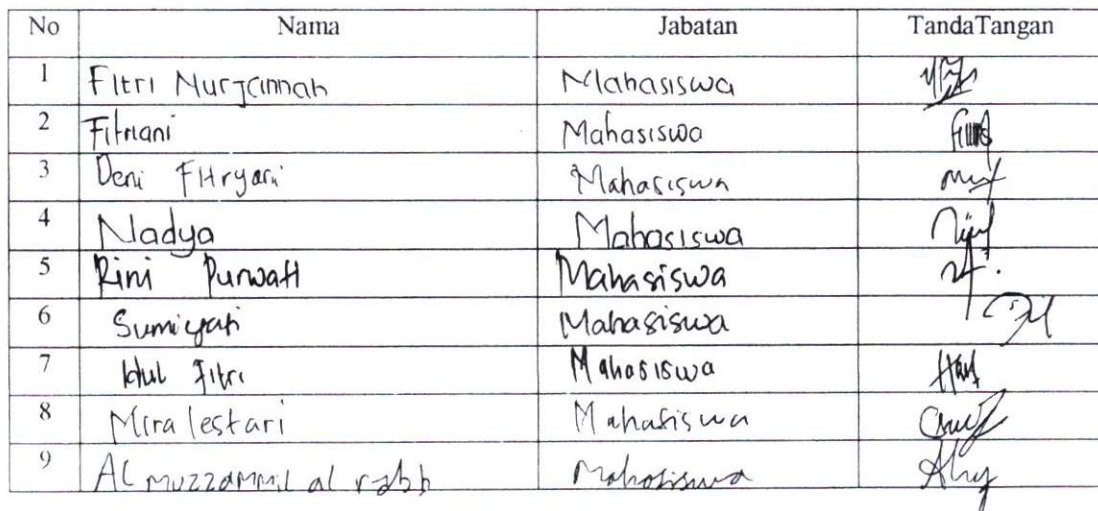 No Nama Jabatan TandaTangan
1 Fitri Nurjannah Mahasiswa
2 Fitriani Mahasiswa
3 Deni Fitryani Mahasiswa
4 Nadya Mahasiswa
5 Rini Purwati Mahasiswa
6 Sumiyati Mahasiswa
7 Idul Fitri Mahasiswa
8 Mira lestari Mahasiswa
9 Al muzzammil al rabb Mahasiswa